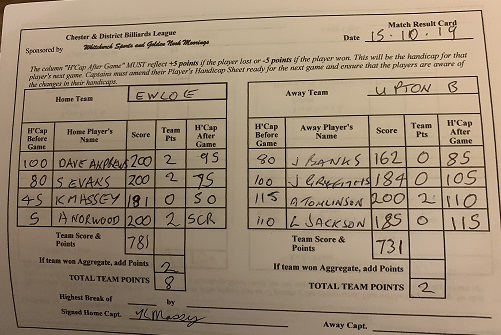 Chester & District Billiards League
Match Result Card
Sponsored by Whitchurch Sports and Golden Nook Moorings
Date 15-10-19
The column "H'Cap After Game" MUST reflect +5 points if the player lost or -5 points if the player won. This will be the handicap for that
player's next game. Captains must amend their Player's Handicap Sheet ready for the next game and ensure that the players are aware of
the changes in their handicaps.
Home Team EWLOE
H'Cap Before Game Home Player's Name Score Team Pts H'Cap After Game
100 DAVE ANDREWS 200 2 95
80 S EVANS 200 2 75
45 K MASSEY 181 0 50
5 A NORWOOD 200 2 SCR
Team Score & Points 781
If team won Aggregate, add Points 2
TOTAL TEAM POINTS 8
Highest Break of by
Signed Home Capt. K Massey
Away Team UPTON B
H'Cap Before Game Away Player's Name Score Team Pts H'Cap After Game
80 J BANKS 162 0 85
100 J GRIFFITHS 184 0 105
115 A TOMLINSON 200 2 110
110 L JACKSON 185 0 115
Team Score & Points 731
If team won Aggregate, add Points
TOTAL TEAM POINTS 2
Away Capt.